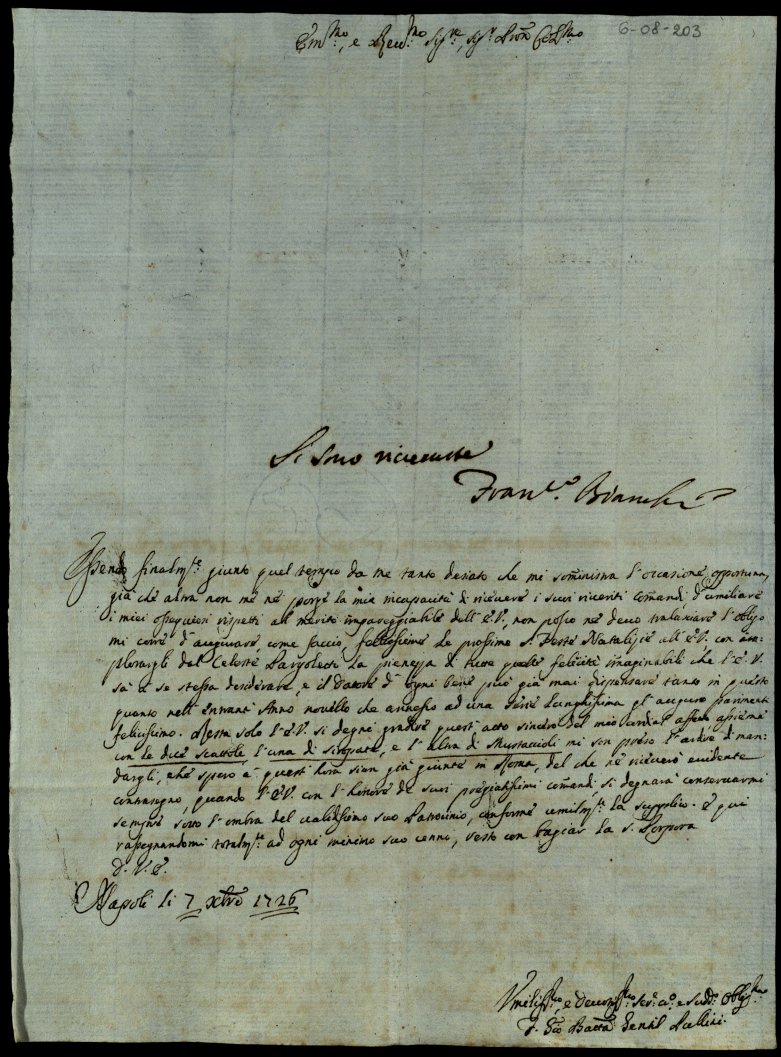 6-08-203
Em.mo, e Rev.mo Sig.re, Sig.r Pron Col.mo
Si sono riceute
Fran.co Bianchi
Essendo finalm.te giunto quel tempo da me tanto desiato che mi somministra l'occasione opportuna,
già che altra non me ne porge la mia incapacità di ricevere i suoi riveriti comandi d'umiliare
i miei ossequiosi rispetti al merito impareggiabile dell'E.V., non posso nè devo tralasciare l'obligo
mi corre d'augurare, come faccio, felicissime le prossime S. Feste Natalizie all'E.V. con im-
plorargli dal Celeste la pienezza di tutte quelle felicità imaginabili che l'E.V.
sà a se stessa desiderare, e il Datore d'ogni bene può già mai dispensare tanto in queste
quanto nell'entrante Anno novello che annesso ad una serie lunghissima gl'auguro parimente
felicissimo. Resta solo l'E.V. si degni gradire quest'atto sincero del mio cordial affetto assieme
con le due scattole, l'una di siropate, e l'altra di Mustaccioli mi son preso l'ardire di man-
dargli, che spero a quest'hora sian già giunte in Roma, del che ne riceverò evidente
contrasegno, quando l'E.V. con l'honore de suoi pregiatissimi comandi si degnarà conservarmi
sempre sotto l'ombra del validissimo suo Patrocinio, conforme umilm.te la supplico. E qui
rassegnandomi totalm.te ad ogni minimo suo cenno, resto con bagiar la S. Porpora
D. V. E.
Napoli li 7 Xbre 1726
Umiliss.mo, e Devotiss.mo Ser.e e Sudd.o Oblig.mo
F. Gio Batta Gentil Pallini